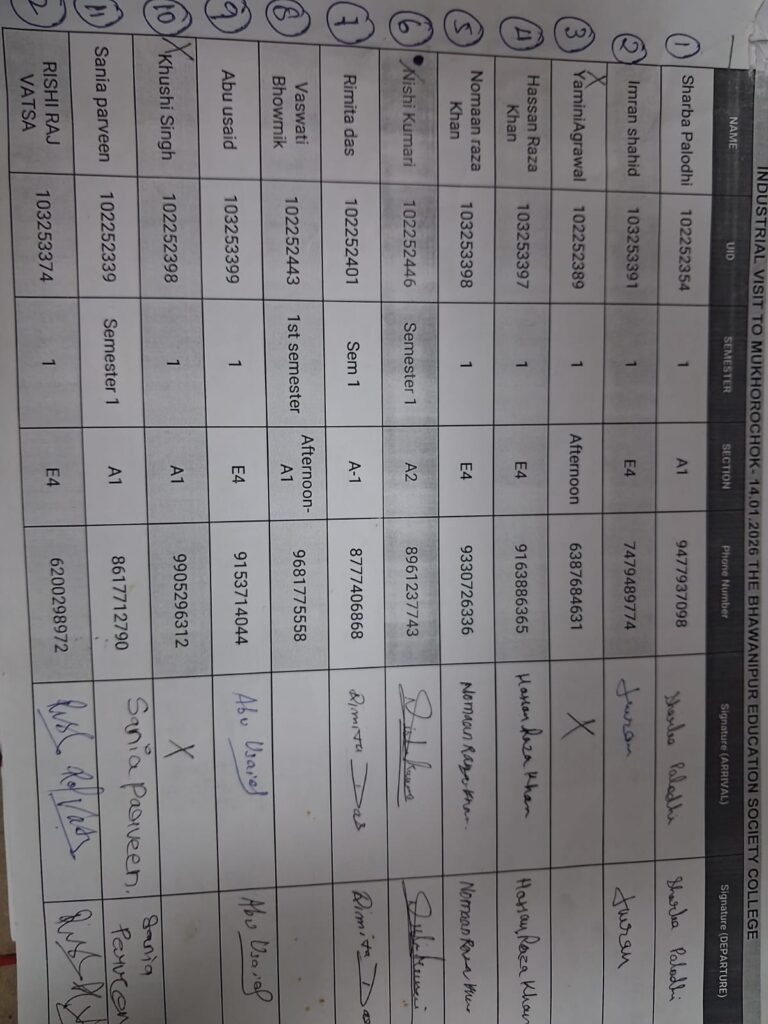 INDUSTRIAL VISIT TO MUKHOROCHOK- 14.01.2026 THE BHAWANIPUR EDUCATION SOCIETY COLLEGE
NAME UID SEMESTER SECTION Phone Number Signature (ARRIVAL) Signature (DEPARTURE)
1 Sharba Palodhi 102252354 1 A1 9477937098 Sharba Palodhi Sharba Palodhi
2 Imran shahid 103253391 1 E4 7479489774
3 X YaminiAgrawal 102252389 1 Afternoon 6387684631 X
4 Hassan Raza 103253397 1 E4 9163886365 Hassan Raza Khan Hassan Raza Khan
Khan
5 Nomaan raza 103253398 1 E4 9330726336 Nomaan Raza Khan. Nomaan Raza Khan
Khan
6 Nishi Kumari 102252446 Semester 1 A2 8961237743
7 Rimita das 102252401 Sem 1 A-1 8777406868 Rimita Das Rimita Das
8 Vaswati 102252443 1st semester Afternoon- 9681775558
Bhowmik A1
9 Abu usaid 103253399 1 E4 9153714044 Abu Usaid Abu Usaid
10 X Khushi Singh 102252398 1 A1 9905296312 X
11 Sania parveen 102252339 Semester 1 A1 8617712790 Sania parveen. Sania
Parveen
2 RISHI RAJ 103253374 1 E4 6200298972
VATSA